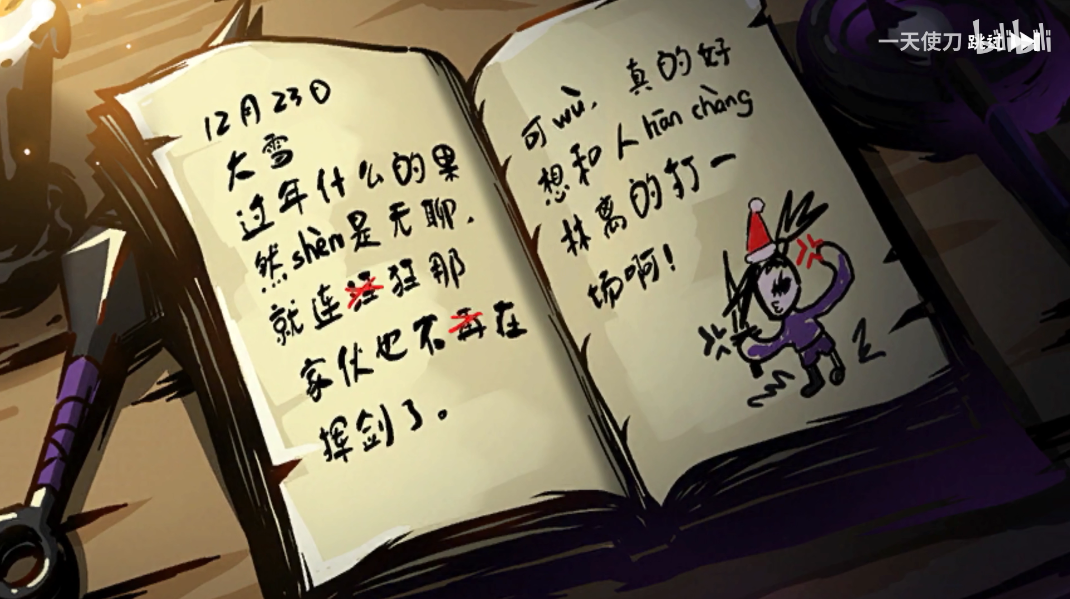 一天使刀
跳过
bilibili
12月23日
大雪
过年什么的果
然shèn是无聊.
就连汪狂那
家伙也不再在
挥剑了。
可wù, 真的好
想和人hān chàng
林离的打一
场啊!